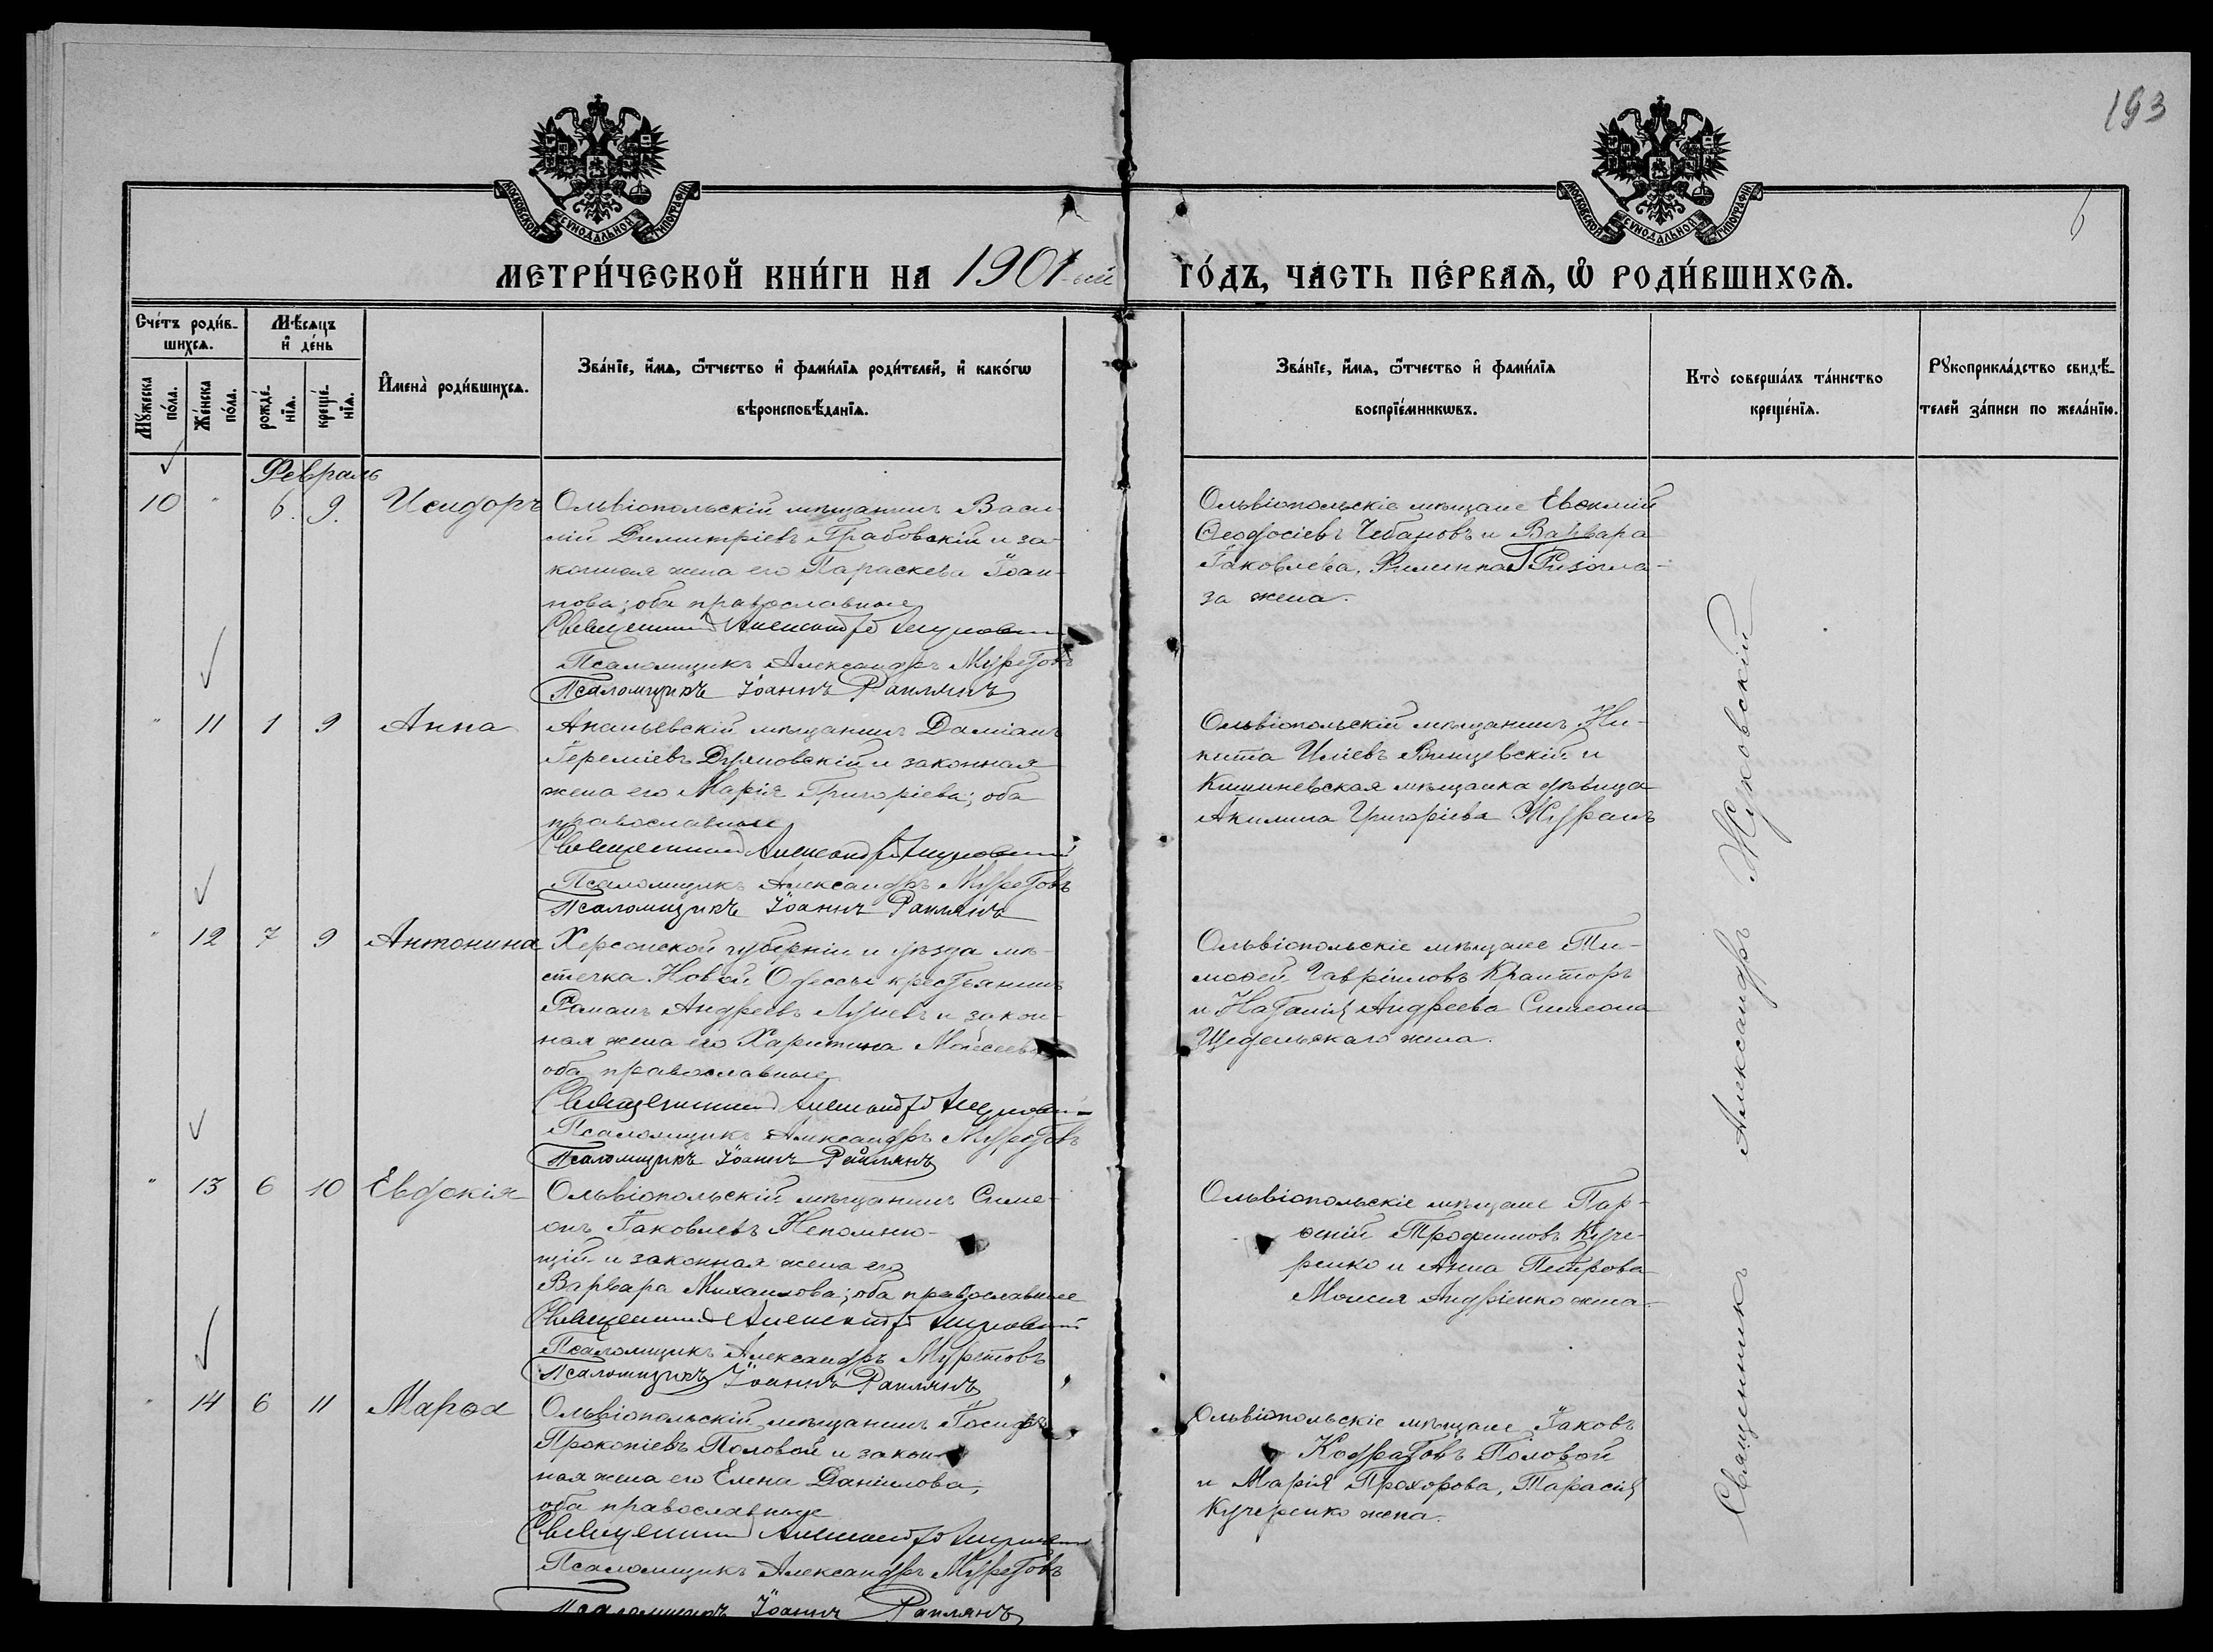 193
МОСКОВСКОЙ СѴНОДАЛЬНОЙ ТИПОГРАФІИ
МОСКОВСКОЙ СѴНОДАЛЬНОЙ ТИПОГРАФІИ
МЕТРИ́ЧЕСКОЙ КНИ́ГИ НА 1901-ый ГО́ДЪ, ЧА́СТЬ ПЕ́РВАѦ, Ѡ҆ РОДИ́ВШИХСѦ.
Сче́тъ роди́в-
шихсѧ.
Мꙋ́жеска
по́ла.
Же́нска
по́ла.
Мѣ́сѧцъ
и҆ де́нь
рожде́-
нїѧ.
креще́-
нїѧ.
И҆мена̀ роди́вшихсѧ.
Зва́нїе, и҆́мѧ, ѻ҆́тчество и҆ фами́лїѧ роди́телей, и҆ како́гѡ
вѣроисповѣ́данїѧ.
Зва́нїе, и҆́мѧ, ѻ҆́тчество и҆ фами́лїѧ
воспрїе́мникѡвъ.
Кто̀ соверша́лъ та́инство
креще́нїѧ.
Рꙋкоприкла́дство свидѣ́-
телей за́писи по жела́нїю.
Февраль
10 " 6. 9. Исидоръ
Ольвіопольскій мѣщанинъ Васи-
лій Димитріевъ Грабовскій и за-
конная жена его Параскева Іоан-
нова; оба православные
Священникъ Александръ Жуковскій
Псаломщикъ Александръ Муретовъ
Псаломщикъ Іоаннъ Раплянъ
Ольвіопольскіе мѣщане Евѳимій
Ѳеодосіевъ Чебановъ и Варвара
Іаковлева, Филиппа
за жена.
" 11 1 9 Анна
Ананьевскій мѣщанинъ Даміанъ
Іереміевъ и законная
жена его Марія Григоріева; оба
православные
Священникъ Александръ Жуковскій
Псаломщикъ Александръ Муретовъ
Псаломщикъ Іоаннъ Раплянъ
Ольвіопольскій мѣщанинъ Ни-
кита Иліевъ и
Кишиневская мѣщанка дѣвица
Акилина Григоріева Журанъ
" 12 7 9 Антонина
Херсонской губерніи и уѣзда мѣ-
стечка Новой Одессы крестьянинъ
Романъ Андреевъ и закон-
ная жена его Харитина Моисеева
оба православные
Священникъ Александръ Жуковскій
Псаломщикъ Александръ Муретовъ
Псаломщикъ Іоаннъ Раплянъ
Ольвіопольскіе мѣщане Ти-
моѳей Гавріиловъ
и Наталія Андреева Симеона
Щедельскаго жена.
" 13 6 10 Евдокія
Ольвіопольскій мѣщанинъ Симе-
онъ Іаковлевъ Непомню-
щій и законная жена его
Варвара Михаилова; оба православные
Священникъ Александръ Жуковскій
Псаломщикъ Александръ Муретовъ
Псаломщикъ Іоаннъ Раплянъ
Ольвіопольскіе мѣщане Пар-
ѳеній Трофимовъ Куче-
ренко и Анна Петрова
Моисея Андріенко жена.
" 14 6 11 Марѳа
Ольвіопольскій мѣщанинъ Іосифъ
Прокопіевъ Половой и закон-
ная жена его Елена Даніилова;
оба православные
Священникъ Александръ Жуковскій
Псаломщикъ Александръ Муретовъ
Псаломщикъ Іоаннъ Раплянъ
Ольвіопольскіе мѣщане Іаковъ
Кодратовъ Половой
и Марія Прохорова, Тарасія
Кучеренко жена.
Священникъ Александръ Жуковскій